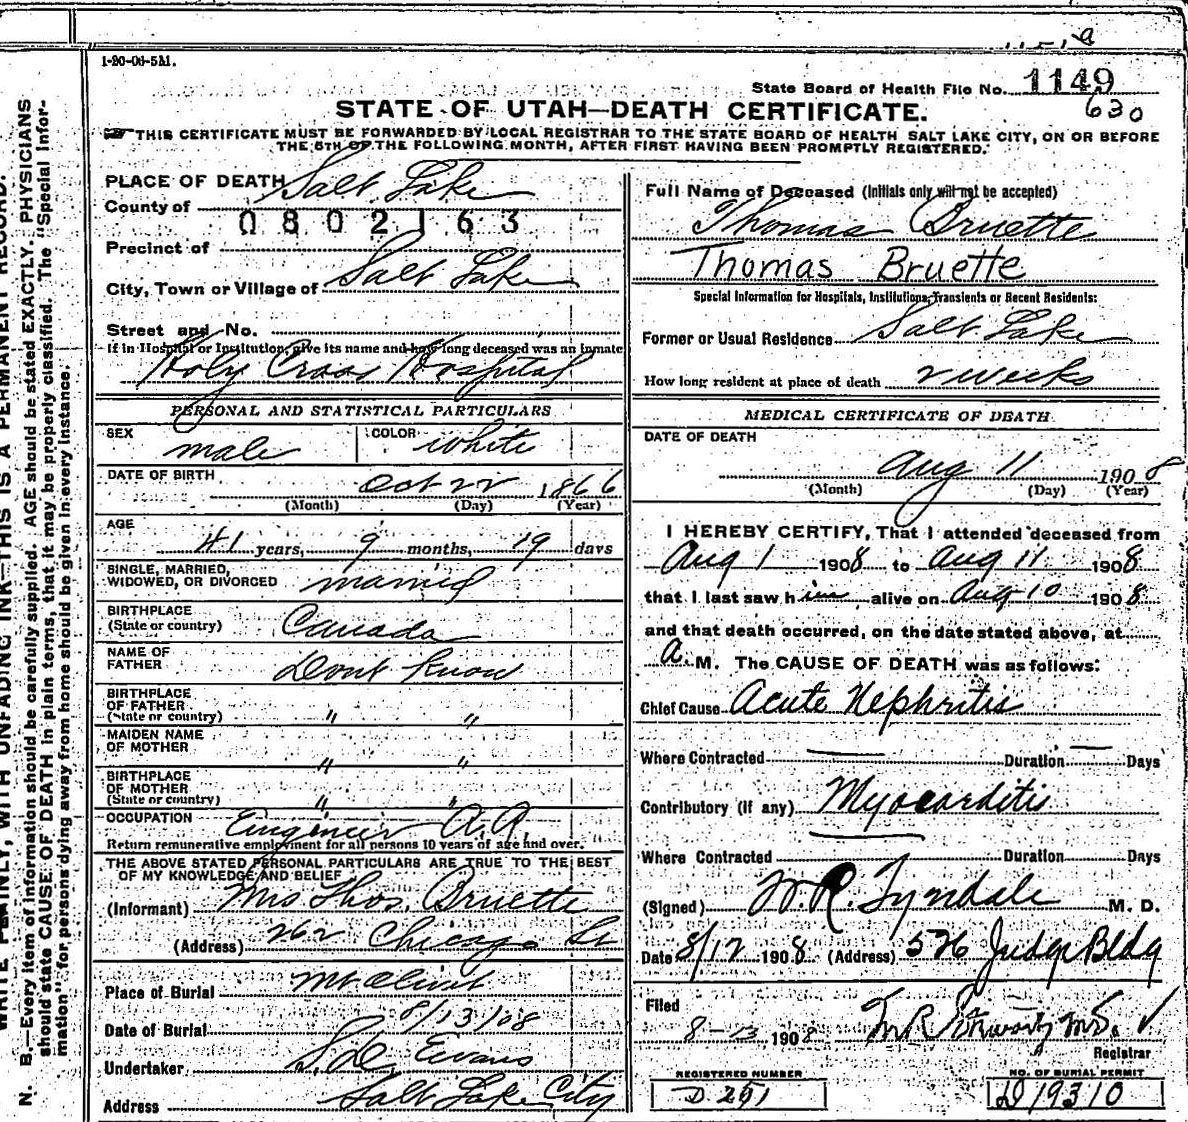 1-20-06-5M.
State Board of Health File No. 1149
630
STATE OF UTAH—DEATH CERTIFICATE.
THIS CERTIFICATE MUST BE FORWARDED BY LOCAL REGISTRAR TO THE STATE BOARD OF HEALTH SALT LAKE CITY, ON OR BEFORE
THE 5TH OF THE FOLLOWING MONTH, AFTER FIRST HAVING BEEN PROMPTLY REGISTERED.
PLACE OF DEATH
County of Salt Lake
0802163
Precinct of
City, Town or Village of Salt Lake
Street and No.
If in Hospital or Institution, give its name and how long deceased was an inmate
Holy Cross Hospital
PERSONAL AND STATISTICAL PARTICULARS
SEX male COLOR white
DATE OF BIRTH Oct 22 1866
(Month) (Day) (Year)
AGE 41 years, 9 months, 19 days
SINGLE, MARRIED,
WIDOWED, OR DIVORCED married
BIRTHPLACE
(State or country) Canada
NAME OF
FATHER Dont know
BIRTHPLACE
OF FATHER
(State or country) " "
MAIDEN NAME
OF MOTHER " "
BIRTHPLACE
OF MOTHER
(State or country) " "
OCCUPATION Engineer R.R.
Return remunerative employment for all persons 10 years of age and over.
THE ABOVE STATED PERSONAL PARTICULARS ARE TRUE TO THE BEST
OF MY KNOWLEDGE AND BELIEF
(Informant) Mrs Thos. Bruette
(Address) 262 Chicago St
Place of Burial Mt Olivet
Date of Burial 8/13/08
Undertaker Evans
Address Salt Lake City
Full Name of Deceased (Initials only will not be accepted)
Thomas Bruette
Thomas Bruette
Special Information for Hospitals, Institutions, Transients or Recent Residents:
Former or Usual Residence Salt Lake
How long resident at place of death 2 weeks
MEDICAL CERTIFICATE OF DEATH
DATE OF DEATH
Aug 11 1908
(Month) (Day) (Year)
I HEREBY CERTIFY, That I attended deceased from
Aug 1 1908 to Aug 11 1908
that I last saw him alive on Aug 10 1908
and that death occurred, on the date stated above, at
A. M. The CAUSE OF DEATH was as follows:
Chief Cause Acute Nephritis
Where Contracted Duration Days
Contributory (if any) Myocarditis
Where Contracted Duration Days
(Signed) W.R. Tyndale M. D.
Date 8/12 1908 (Address) 526 Judge Bldg
Filed
8-13 1908
Registrar
REGISTERED NUMBER
D 251
NO. OF BURIAL PERMIT
D19310
WRITE PLAINLY, WITH UNFADING INK—THIS IS A PERMANENT RECORD.
N. B.—Every item of information should be carefully supplied. AGE should be stated EXACTLY. PHYSICIANS
should state CAUSE OF DEATH in plain terms, that it may be properly classified. The "Special Infor-
mation" for persons dying away from home should be given in every instance.